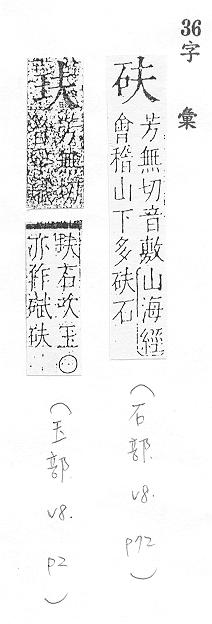 36字彙
砆
芳無切音敷山海經
會稽山下多砆石
(石部. v8. p72)
玞
芳無切
玞石次玉○
亦作碔玞
(玉部. v8. p2)